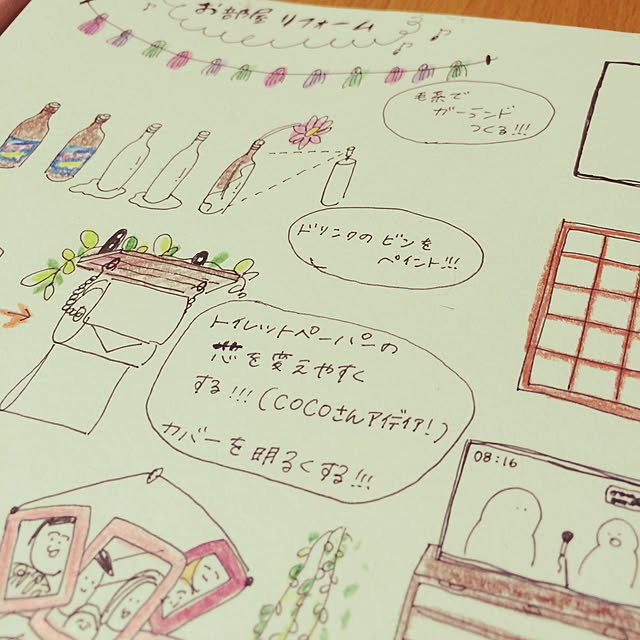 お部屋リフォーム
毛糸で
ガーランド
つくる!!!
ドリンクのビンを
ペイント!!!
トイレットペーパーの
芯を変えやすく
する!!!(COCOさんアイデア!)
カバーを明るくする!!!
08:16